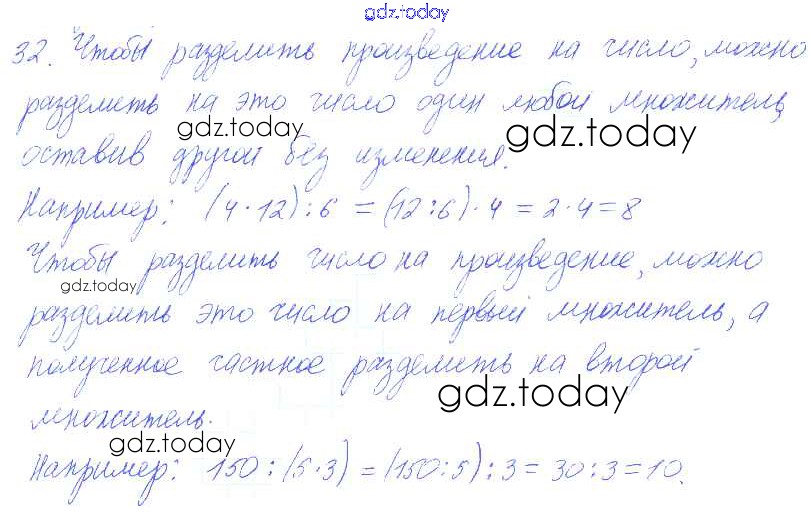 gdz.today
32. Чтобы разделить произведение на число, можно
разделить на это число один любой множитель,
gdz.today gdz.today
оставив другой без изменения.
Например: (4·12):6 = (12:6)·4 = 2·4=8
Чтобы разделить число на произведение, можно
gdz.today
разделить это число на первый множитель, а
полученное частное разделить на второй
gdz.today
множитель.
gdz.today
Например: 150:(5·3) = (150:5):3 = 30:3=10.